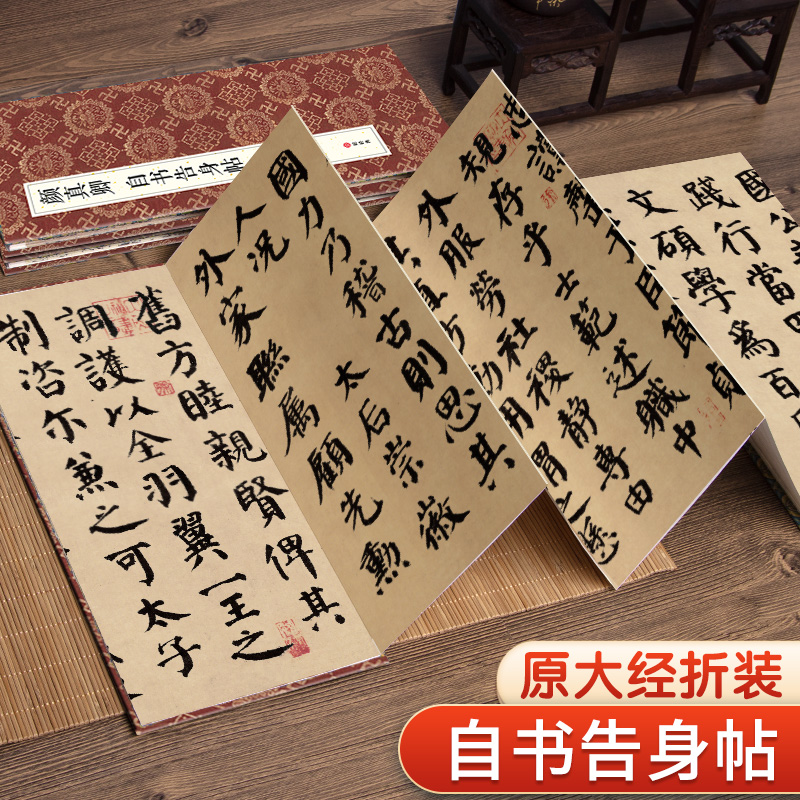 颜真卿 自书告身帖
國
踐行當
文碩學為百
忠讜罄于臣節貞
規存乎士範述職中
外服勞社稷靜專由
其直方動用謂之懸
國力乃稽古則思其
人況太后崇徽
外家聯屬顧先勳
舊方睦親賢俾其
調護以全羽翼一王之
制咨尔兼之可太子
原大经折装
自书告身帖